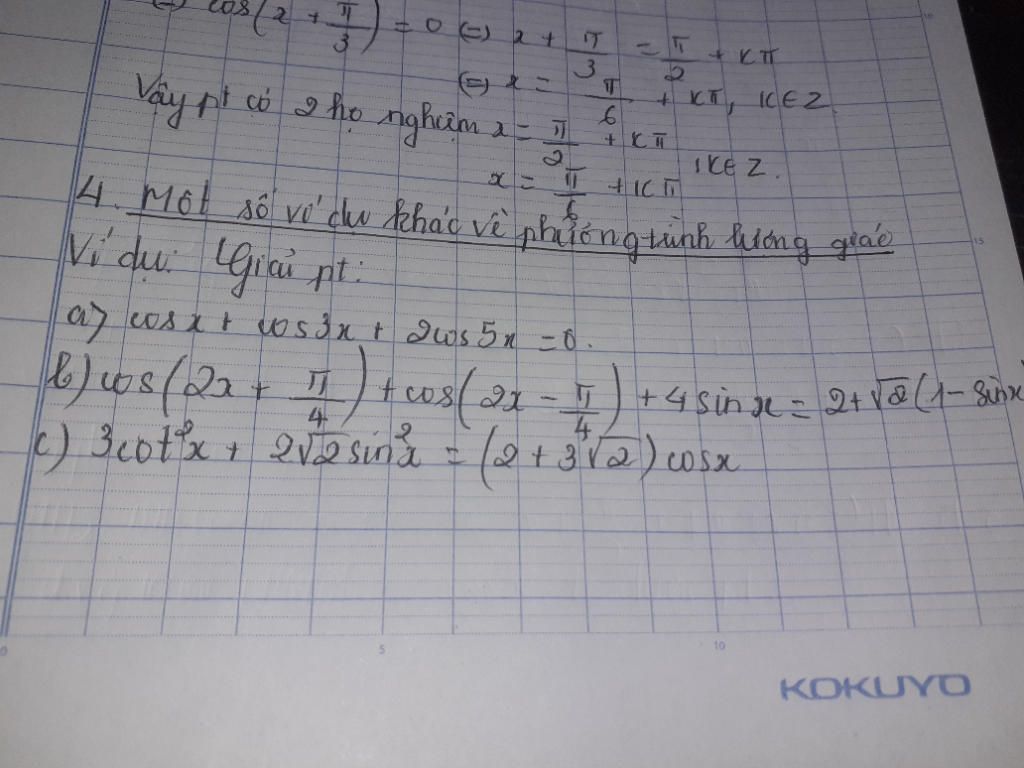 (=) cos(x + π/3) = 0 (=) x + π/3 = π/2 + kπ
(=) x = π/6 + kπ, k∈Z
Vậy pt có 2 họ nghiệm x = π/2 + kπ
x = π/6 + kπ , k∈Z.
4. Một số ví dụ khác về phương trình lượng giác
Ví dụ: Giải pt:
a) cosx + cos3x + 2cos5x = 0.
b) cos(2x + π/4) + cos(2x - π/4) + 4sinx = 2+√2(1-sinx)
c) 3cot²x + 2√2sin²x = (2 + 3√2)cosx
0 5 10
15
KOKUYO